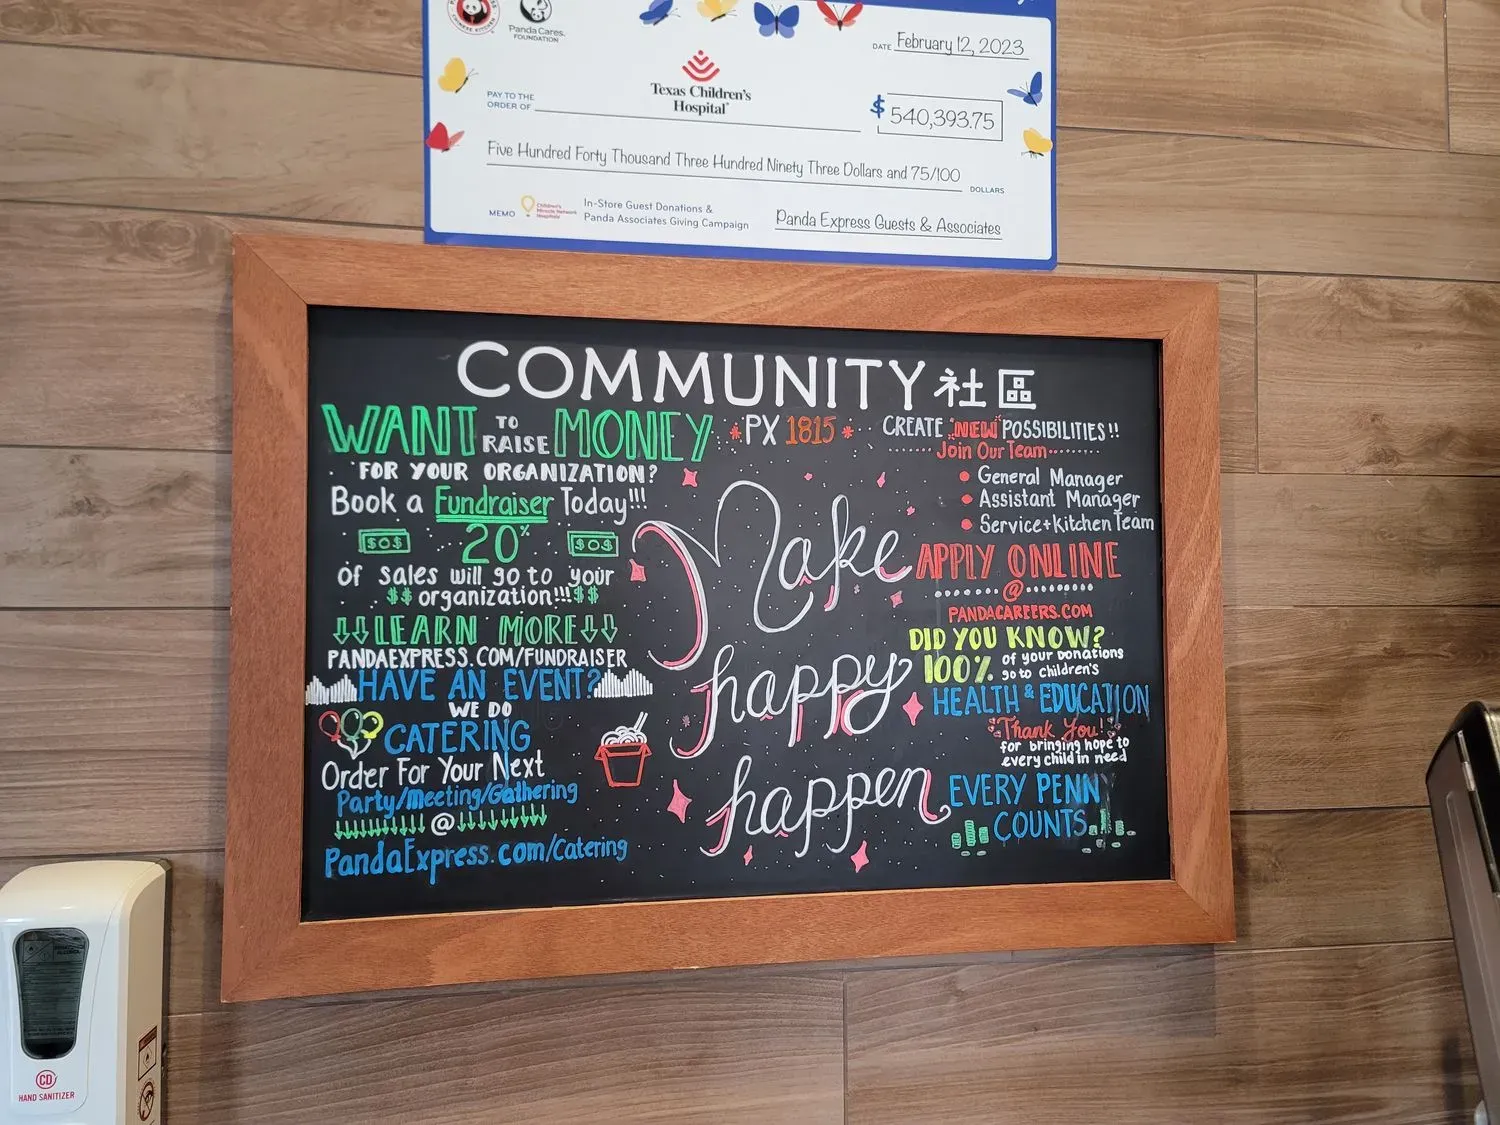 Panda Cares.
FOUNDATION
DATE February 12, 2023
Texas Children's
Hospital
PAY TO THE
ORDER OF
$ 540,393.75
Five Hundred Forty Thousand Three Hundred Ninety Three Dollars and 75/100
DOLLARS
MEMO
Children's
Miracle Network
Hospitals
In-Store Guest Donations &
Panda Associates Giving Campaign
Panda Express Guests & Associates
COMMUNITY 社區
WANT TO RAISE MONEY
FOR YOUR ORGANIZATION?
Book a Fundraiser Today!!!
$0$ 20% $0$
of sales will go to your
$$ organization!!! $$
↓↓LEARN MORE↓↓
PANDAEXPRESS.COM/FUNDRAISER
HAVE AN EVENT?
WE DO
CATERING
Order For Your Next
Party/Meeting/Gathering
↓↓↓↓↓↓↓↓↓↓ @ ↓↓↓↓↓↓↓↓↓
PandaExpress.com/Catering
*PX 1815*
Make
happy
happen
CREATE NEW POSSIBILITIES!!
Join Our Team
• General Manager
• Assistant Manager
• Service+kitchen Team
APPLY ONLINE
@
PANDACAREERS.COM
DID YOU KNOW?
100% of your Donations
go to children's
HEALTH & EDUCATION
Thank You!
for bringing hope to
every child in need
EVERY PENNY
COUNTS
CD
HAND SANITIZER